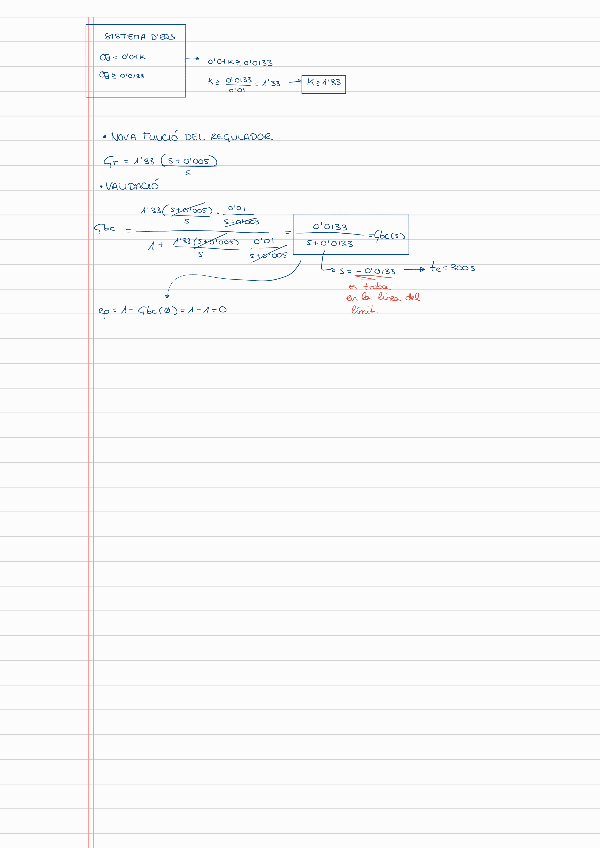 SISTEMA D'EQS
σ = 0'01K
σ ≥ 0'0133
→ 0'01K ≥ 0'0133
K ≥ 0'0133 / 0'01 = 1'33 → K ≥ 1'33
• NOVA FUNCIÓ DEL REGULADOR
Gr = 1'33 (s+0'005) / s
• VALIDACIÓ
Gbc = (1'33(s+0'005) / s · 0'01 / s+0'005) / (1 + 1'33(s+0'005) / s · 0'01 / s+0'005) = 0'0133 / s+0'0133 = Gbc(s)
→ s = -0'0133 → te = 300s
es troba
en la línea del
límit.
ep = 1 - Gbc(0) = 1 - 1 = 0